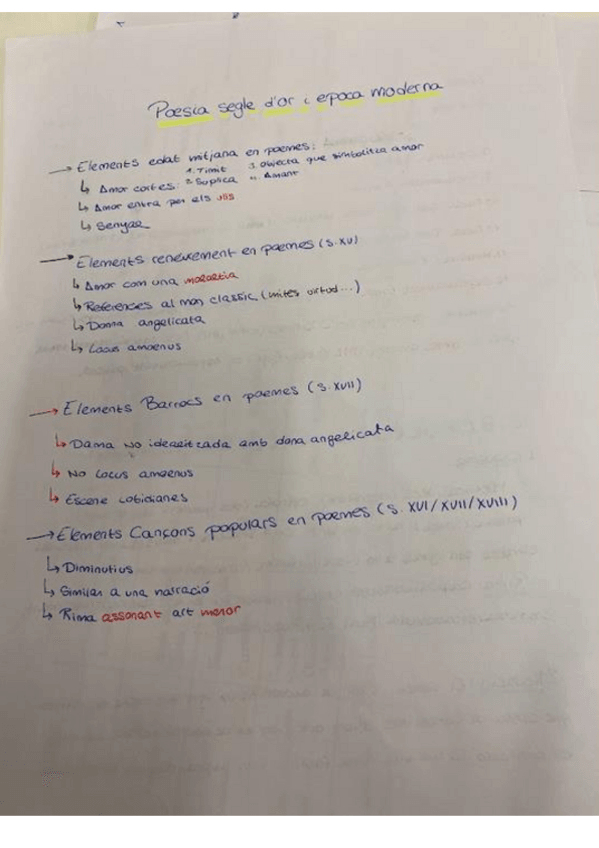 Poesia segle d'or i epoca moderna
→ Elements edat mitjana en poemes:
↳ Amor cortes: 1. Timit 2. Suplica 3. Objecta que simbolitza amor 4. Amant
↳ Amor entra per els ulls
↳ Senyal
→ Elements reneixement en poemes (s. XV)
↳ Amor com una malaltia
↳ References al mon classic (mites virtud...)
↳ Dona angelicata
↳ Locus amoenus
→ Elements Barrocs en poemes (s. XVII)
↳ Dama NO idealitzada amb dona angelicata
↳ No locus amoenus
↳ Escene cotidianes
→ Elements Cançons populars en poemes (s. XVI/XVII/XVIII)
↳ Diminutius
↳ Similar a una narració
↳ Rima assonant art menor